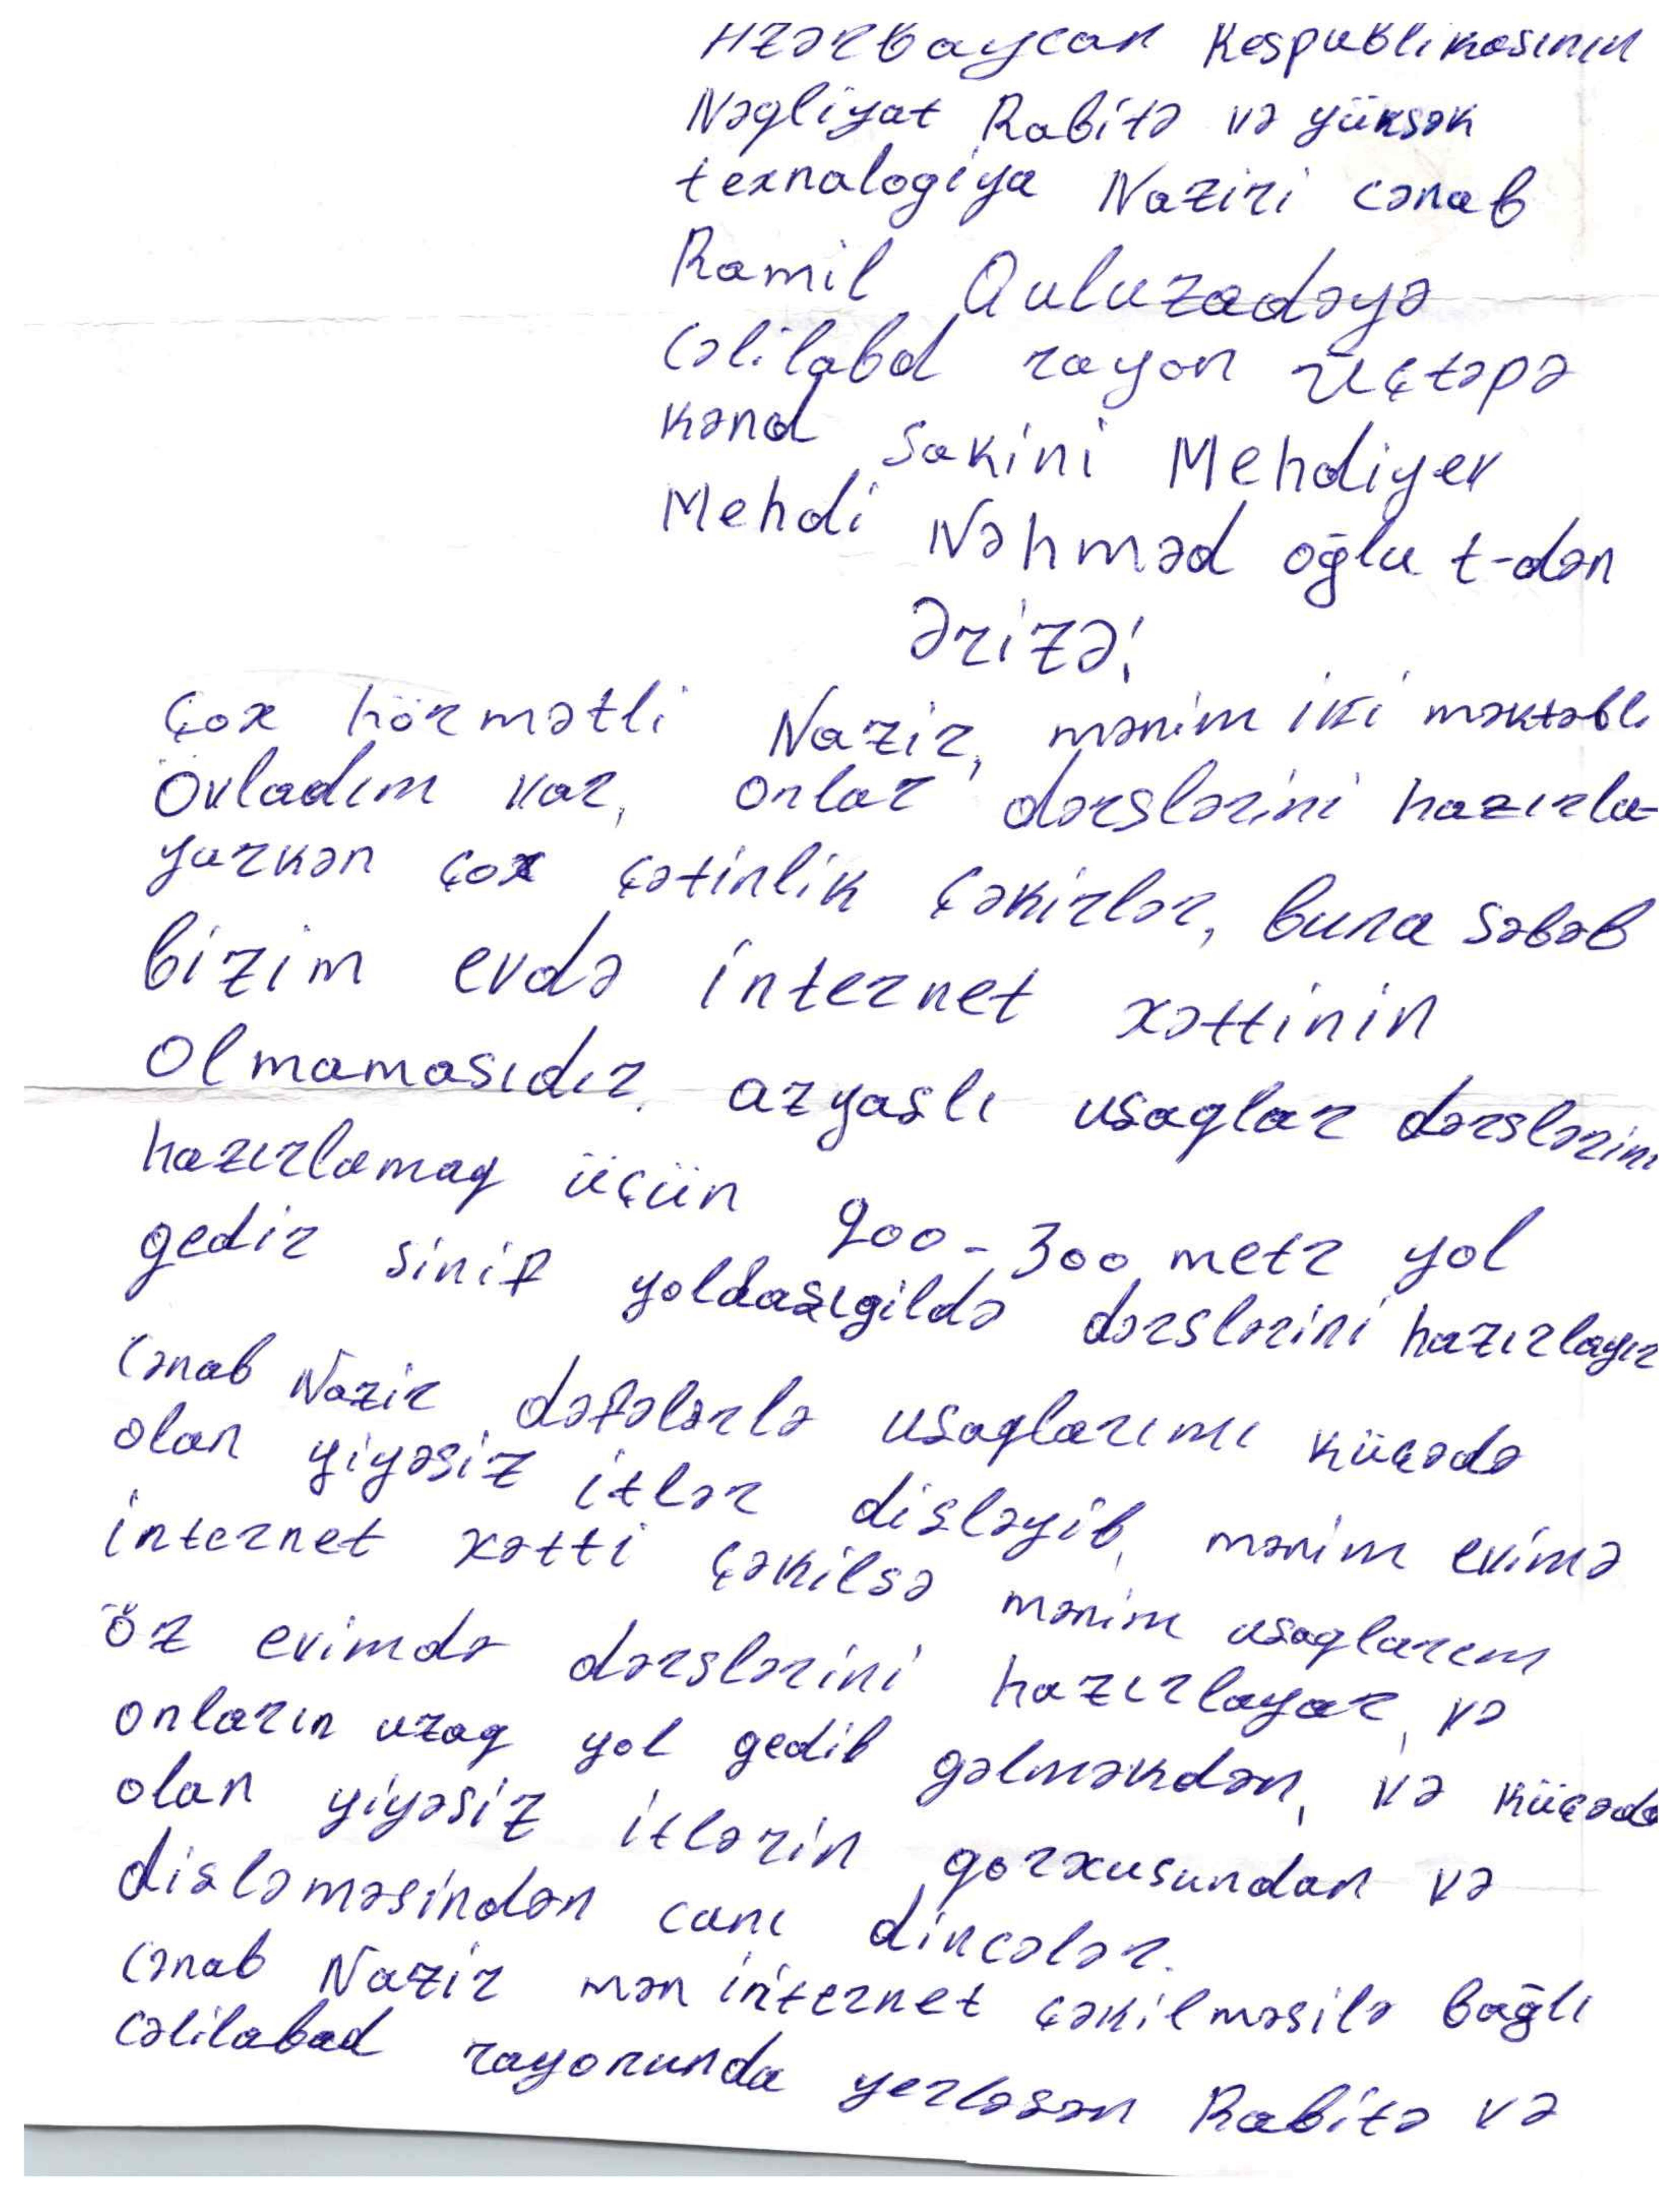 Azərbaycan Respublikasının
Nəqliyat Rabitə və yüksək
texnalogiya Naziri cənab
Ramil Quluzadəyə
Cəlilabd rayon Üçtəpə
kənd sakini Mehdiyev
Mehdi Nəhməd oğlu t-dən
Ərizə!
Çox hörmətli Nazir, mənim iki məktəbli
Övladım var, onlar dərslərini hazırla-
yarkən çox çətinlik çəkirlər, buna səbəb
bizim evdə internet xəttinin
Olmamasıdır. azyaşlı uşaqlar dərslərini
hazırlamaq üçün 200-300 metr yol
gedir sinif yoldaşıgildə dərslərini hazırlayır
Cənab Nazir dəfələrlə uşaqlarımı küçədə
olan yiyəsiz itlər dişləyib, mənim evimə
internet xətti çəkilsə mənim uşaqlarım
öz evimdə dərslərini hazırlayar, və
onların uzaq yol gedib gəlməkdən, və küçədə
olan yiyəsiz itlərin qorxusundan və
dişləməsindən canı dincələr.
Cənab Nazir mən internet çəkilməsilə bağlı
Cəlilabad rayonunda yerləşən Rabitə və